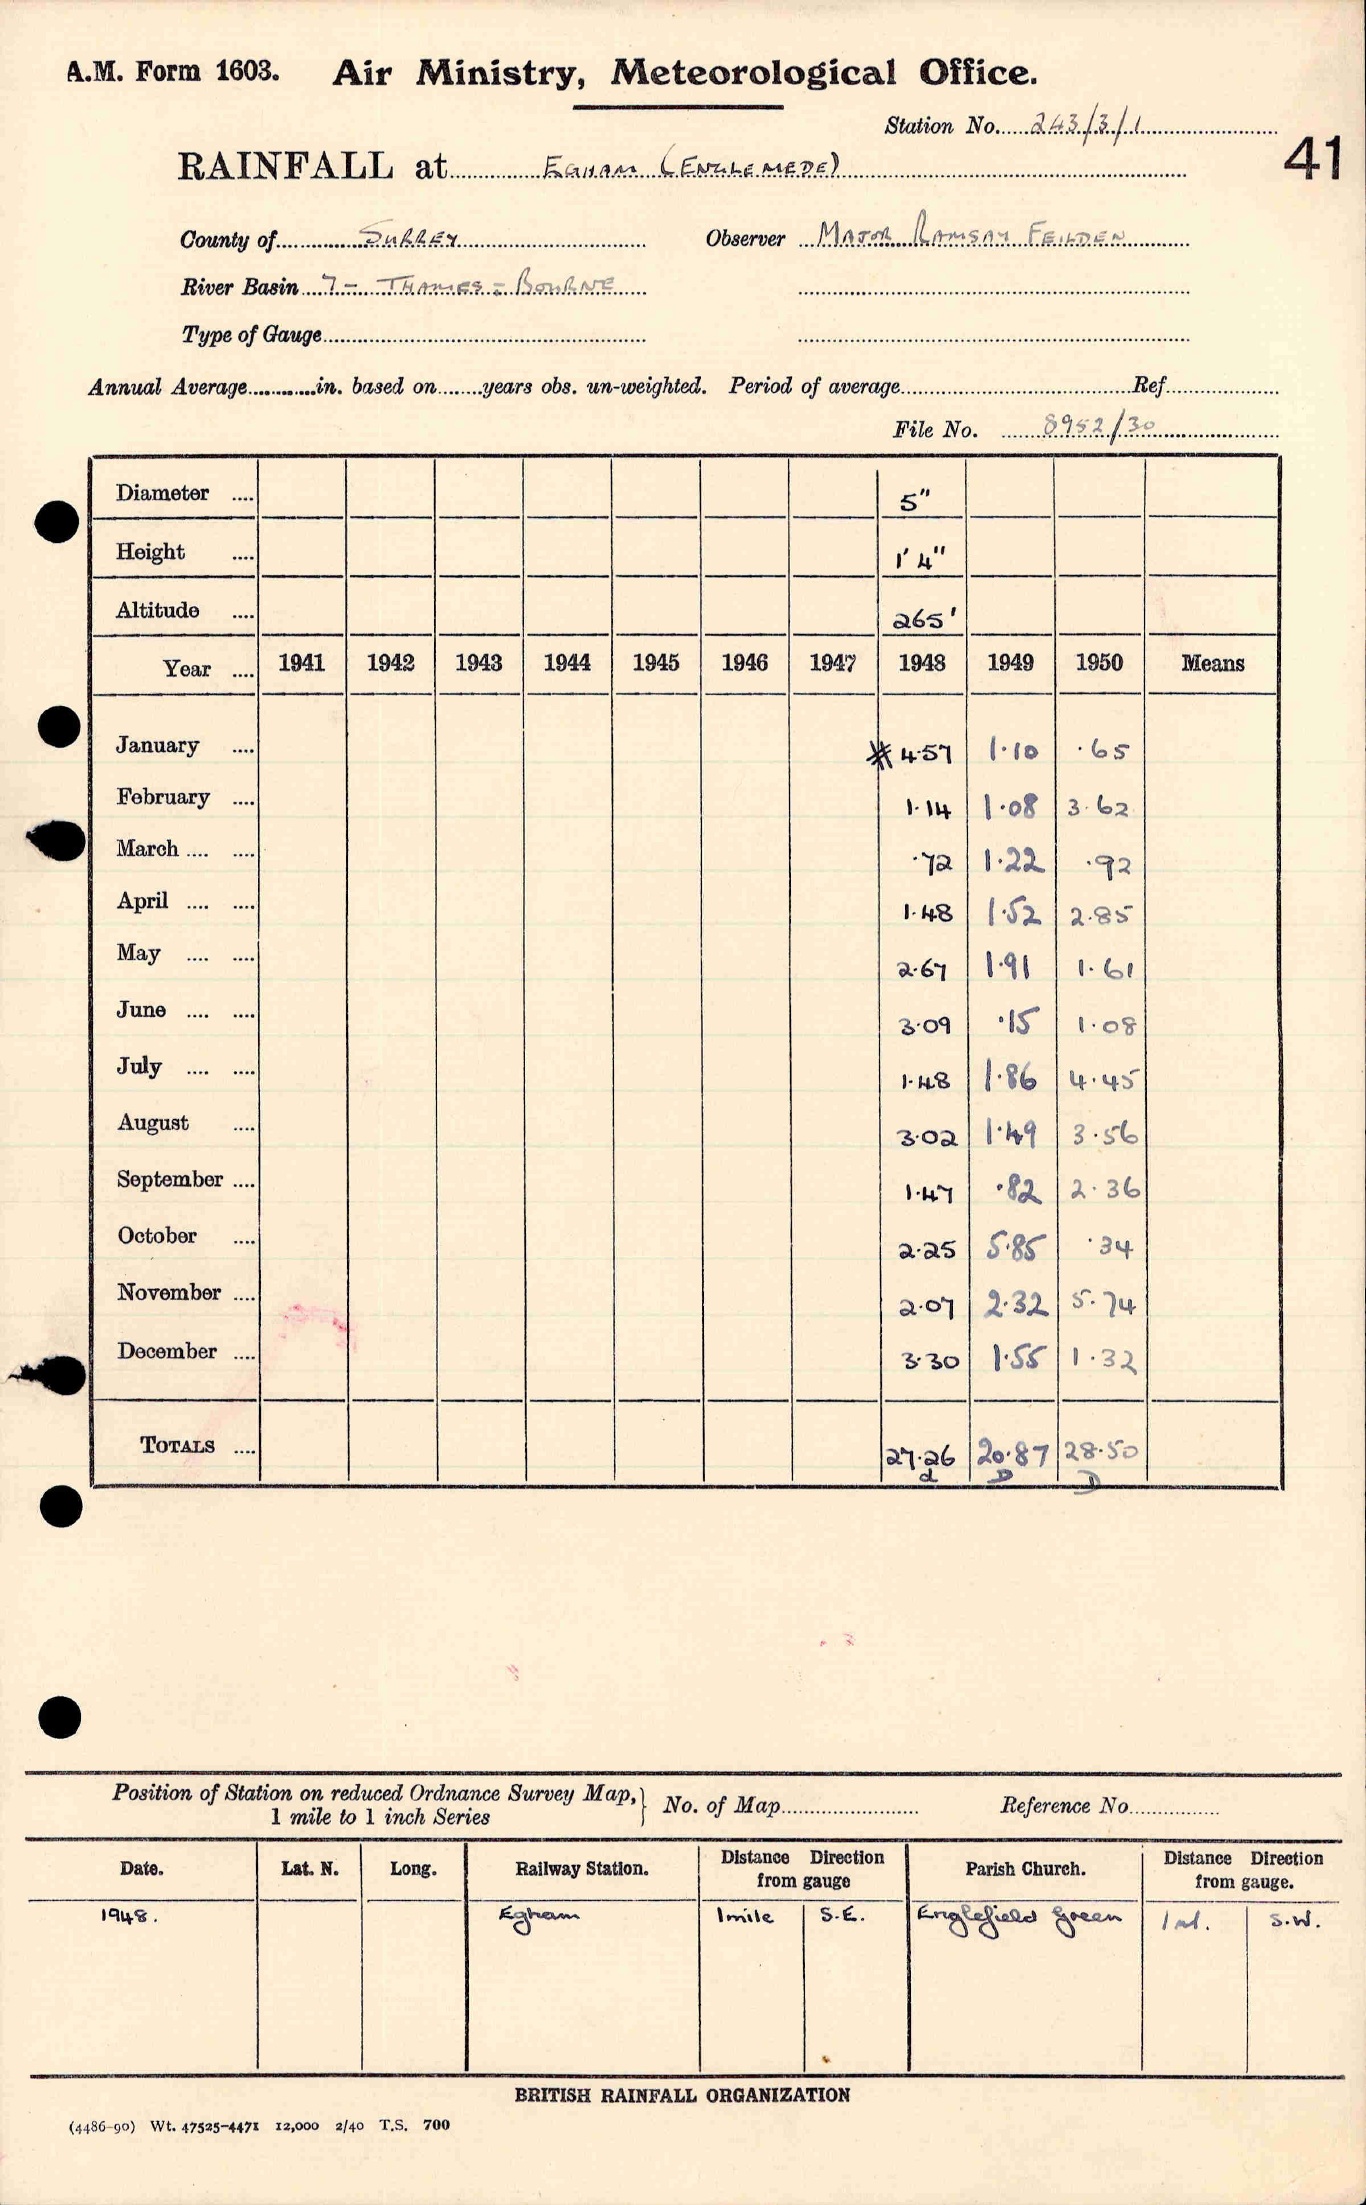 A.M. Form 1603. Air Ministry, Meteorological Office.
Station No. 243/3/1
41
RAINFALL at EGHAM (ENGLEMEDE)
County of SURREY Observer MAJOR RAMSAY FEILDEN
River Basin 7 - THAMES = BOURNE
Type of Gauge
Annual Average in. based on years obs. un-weighted. Period of average Ref
File No. 8952/30
Diameter .... 5"
Height .... 1' 4"
Altitude .... 265'
Year .... 1941 1942 1943 1944 1945 1946 1947 1948 1949 1950 Means
January .... # 4.57 1.10 .65
February .... 1.14 1.08 3.62
March .... .... .72 1.22 .92
April .... .... 1.48 1.52 2.85
May .... .... 2.67 1.91 1.61
June .... .... 3.09 .15 1.08
July .... .... 1.48 1.86 4.45
August .... 3.02 1.49 3.56
September .... 1.47 .82 2.36
October .... 2.25 5.85 .34
November .... 2.07 2.32 5.74
December .... 3.30 1.55 1.32
TOTALS .... 27.26 20.87 28.50
d D D
Position of Station on reduced Ordnance Survey Map, } No. of Map Reference No
1 mile to 1 inch Series
Date. Lat. N. Long. Railway Station. Distance Direction from gauge Parish Church. Distance Direction from gauge.
1948. Egham 1 mile S.E. Englefield Green 1 ml. S.W.
BRITISH RAINFALL ORGANIZATION
(4486-90) Wt. 47525-4471 12,000 2/40 T.S. 700